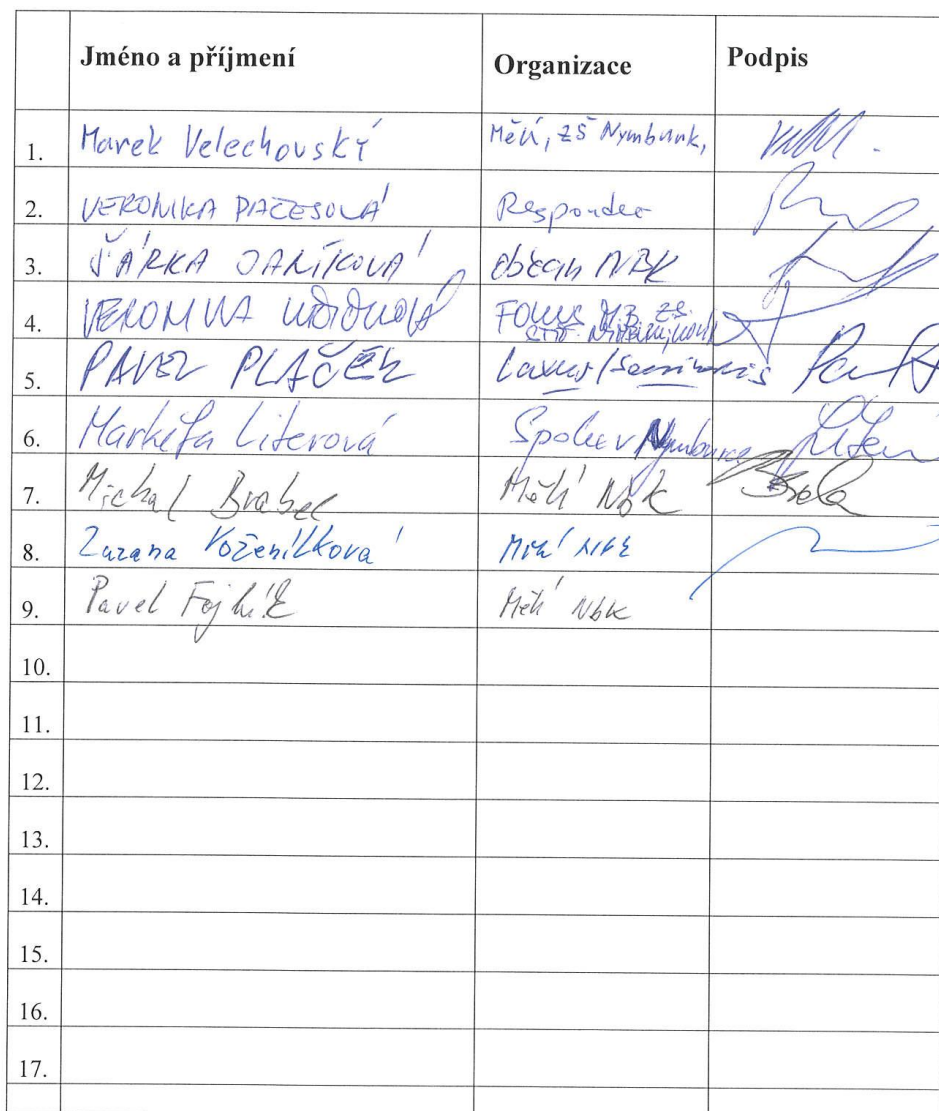 Jméno a příjmení Organizace Podpis
1. Marek Velechovský MěÚ, ZŠ Nymburk,
2. VERONIKA PAČESOVÁ Respondeo
3. ŠÁRKA JANÍKOVÁ občan NBK
4. VERONIKA FOKUS M.B. ZŠ
5. PAVEL PLAČEK Laxus / Semiramis
6. Markéta Literová Spolu v Nymburce
7. Michal Brabec MěÚ NbK
8. Zuzana Voženílková MěÚ NBK
9. Pavel Fojtík MěÚ NbK
10.
11.
12.
13.
14.
15.
16.
17.